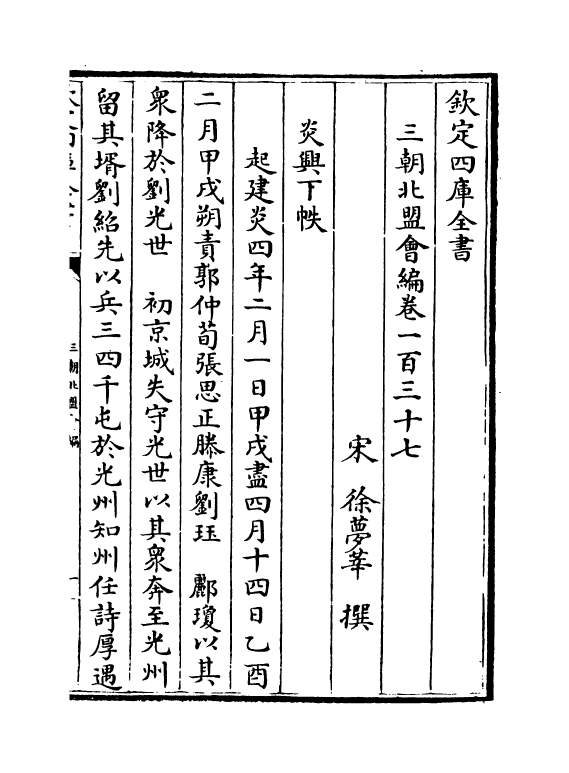 欽定四庫全書
三朝北盟會編卷一百三十七
宋 徐夢莘 撰
炎興下帙
起建炎四年二月一日甲戌盡四月十四日乙酉
二月甲戌朔責郭仲荀張思正滕康劉珏 酈瓊以其
衆降於劉光世 初京城失守光世以其衆奔至光州
留其壻劉紹先以兵三四千屯於光州知州任詩厚遇
三朝北盟